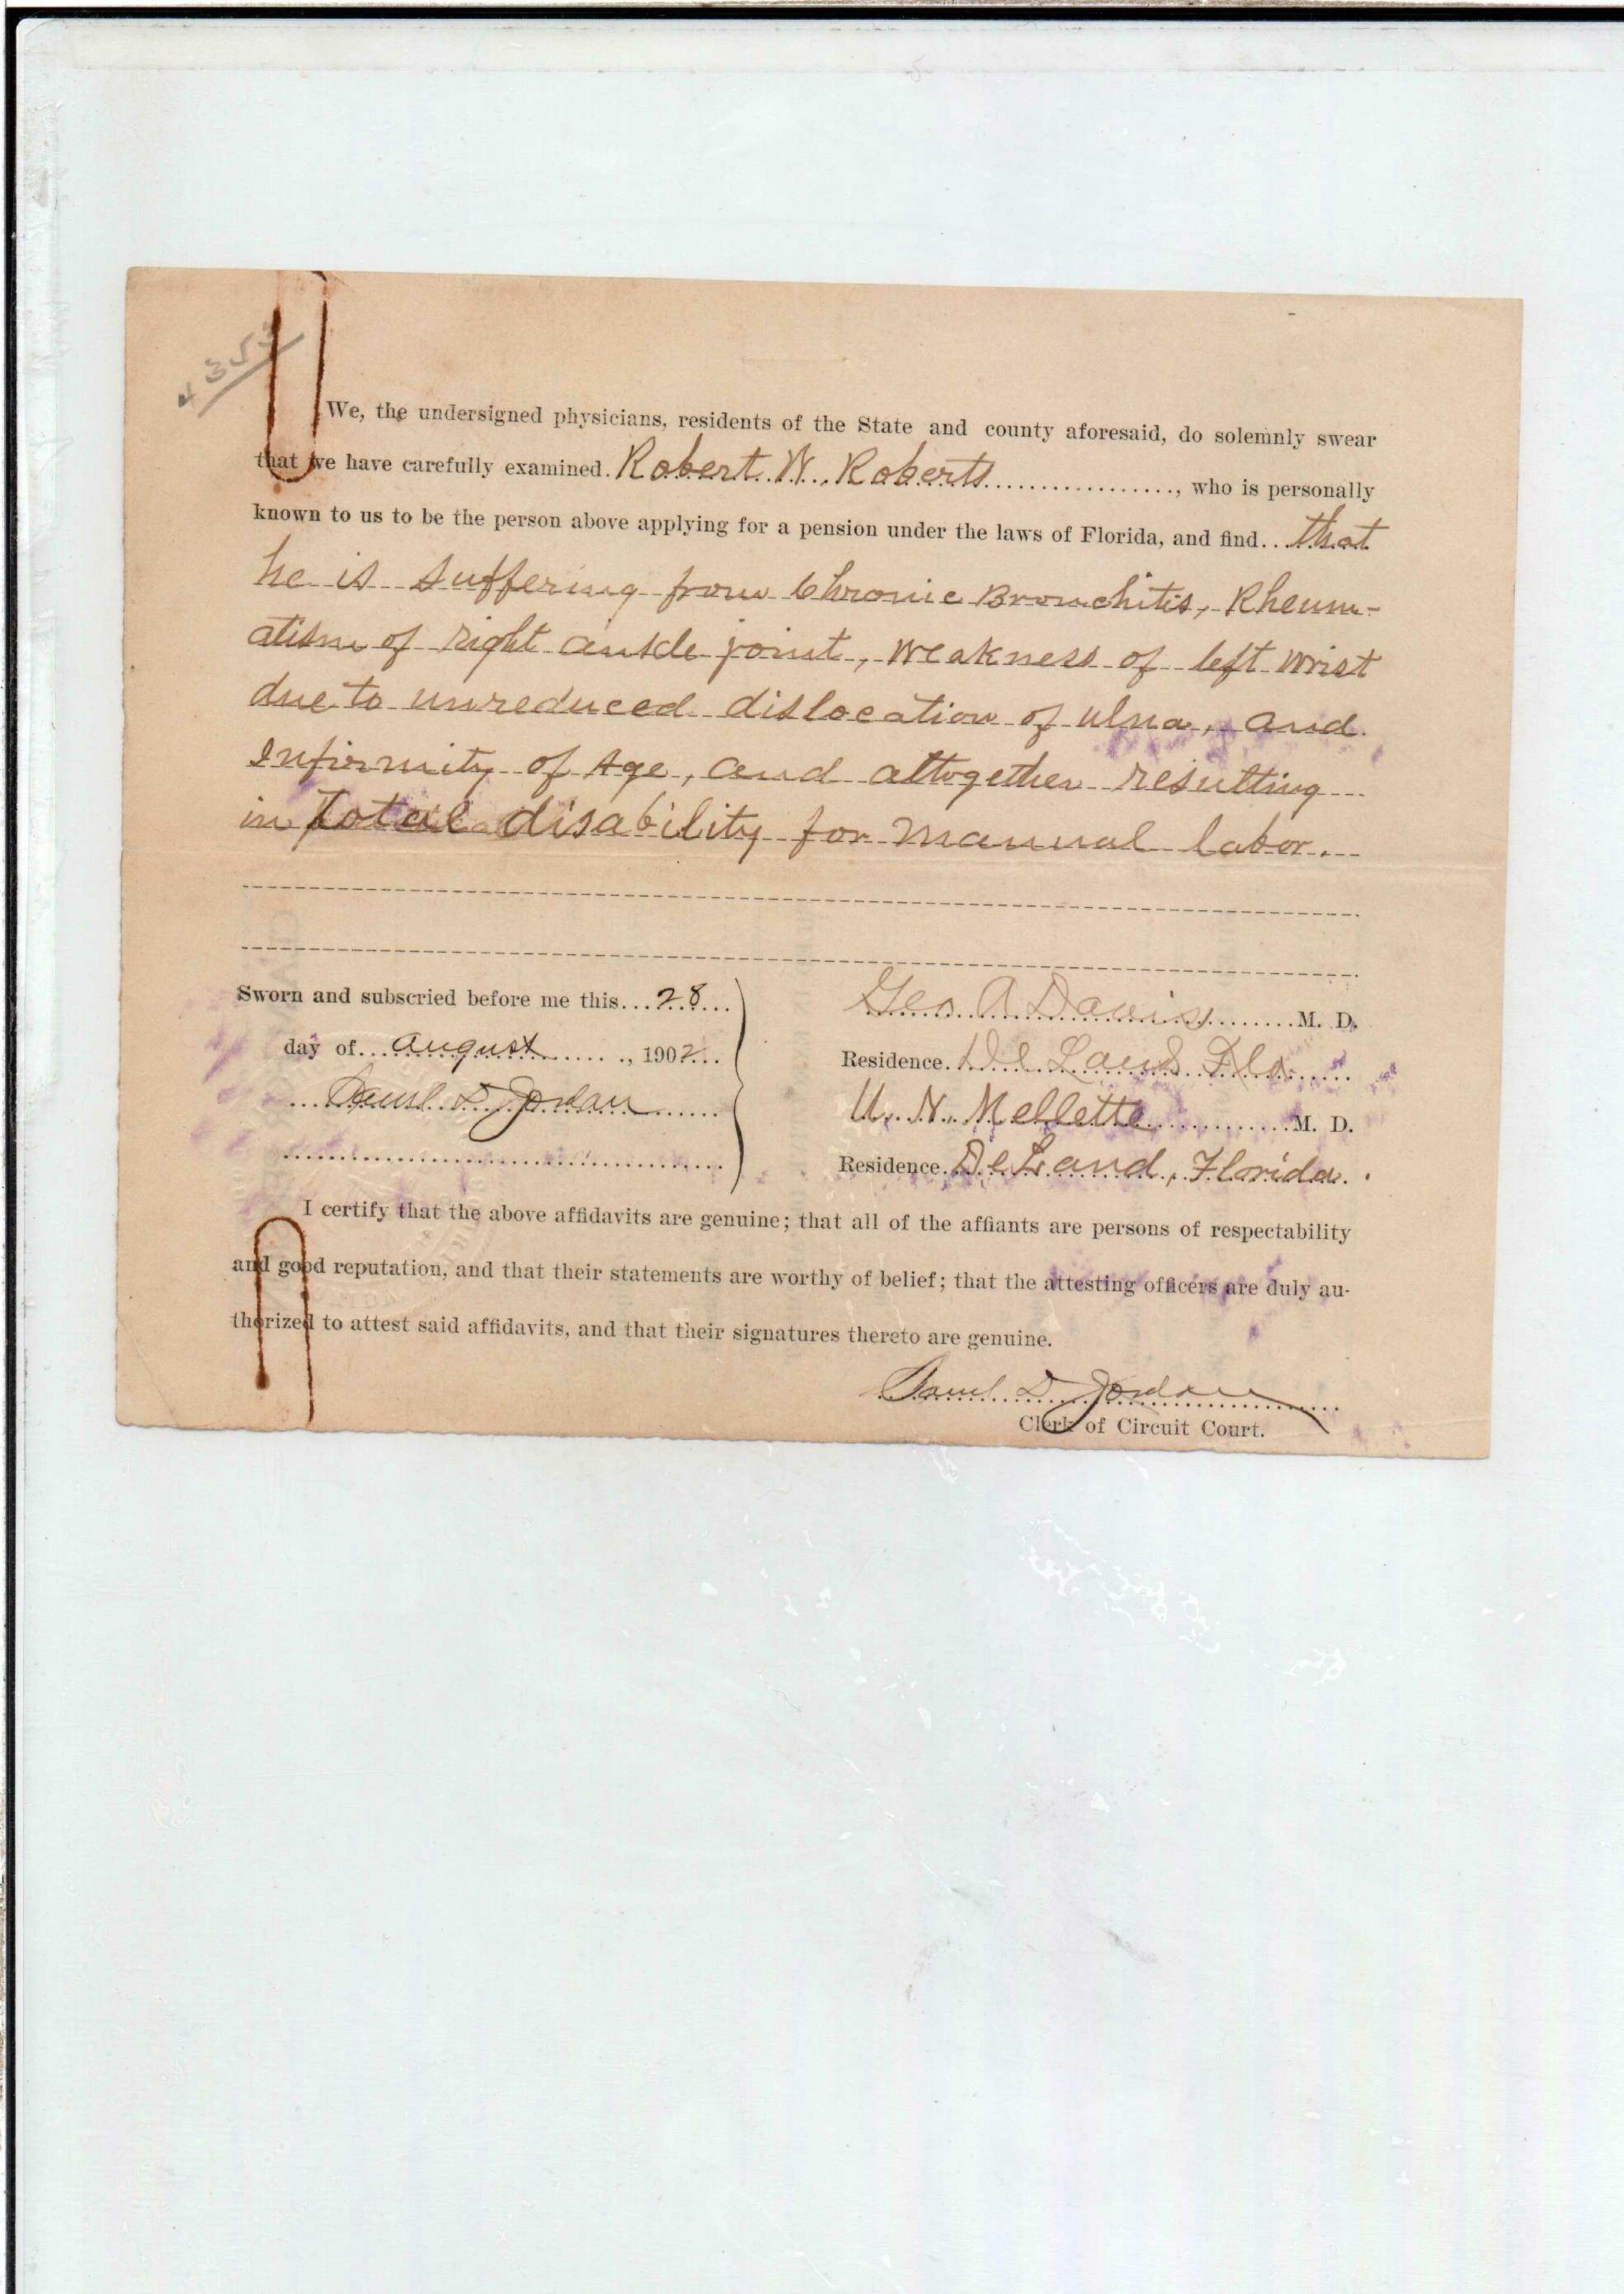 353
We, the undersigned physicians, residents of the State and county aforesaid, do solemnly swear
that we have carefully examined. Robert W. Roberts ..................., who is personally
known to us to be the person above applying for a pension under the laws of Florida, and find.. that
he is suffering from Chronic Bronchitis, Rheum-
atism of right ankle joint, weakness of left wrist
due to unreduced dislocation of ulna, and
Infirmity of Age, and altogether resulting
in Total disability for manual labor.
Sworn and subscried before me this...28...
day of...august......., 1902...
Saml D Jordan
Geo A Davis.........M. D.
Residence. De Land Fla
U. N. Mellette............M. D.
Residence. DeLand, Florida.
I certify that the above affidavits are genuine; that all of the affiants are persons of respectability
and good reputation, and that their statements are worthy of belief; that the attesting officers are duly au-
thorized to attest said affidavits, and that their signatures thereto are genuine.
Saml D Jordan
Clerk of Circuit Court.